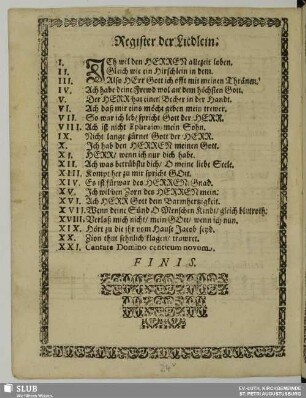 Register der Liedlein.
I. ICh wil den HERREN allezeit loben.
II. Gleich wie ein Hirschlein in dem.
III. Also HErr Gott ich offt mit meinen Thränn.
IV. Ach habe deine Frewd wol an dem höchsten Gott.
V. Der HERR hat einen Becher in der Handt.
VI. Ach daß mir eins möcht geben mein trewer.
VII. So war ich leb/ spricht Gott der HERR.
VIII. Ach ist nicht Ephraim mein Sohn.
IX. Nicht lange zürnet Gott der HERR.
X. Ich hab den HERREN meinen Gott.
XI. HERR/ wenn ich nur dich habe.
XII. Ach was betrübstu dich/ O meine liebe Seele.
XIII. Kompt her zu mir spricht GOtt.
XIV. Es ist fürwar des HERREN Gnad.
XV. Ich wil den Zorn des HERREN mein.
XVI. Ach HERR Gott dein Barmhertzigkeit.
XVII. Wenn deine Sünd O Menschen Kindt/ gleich blutroth.
XVIII. Verlaß mich nicht/ mein GOtt/ wenn ich nun.
XIX. Hört zu die ihr vom Hauß Jacob seyd.
XX. Zion thut sehnlich klagen/ trawret.
XXI. Cantate Domino canticum novum.
FINIS.
SLUB
Wir führen Wissen.
EV.-LUTH. KIRCHGEMEINDE
ST. PETRI AUGUSTUSBURG